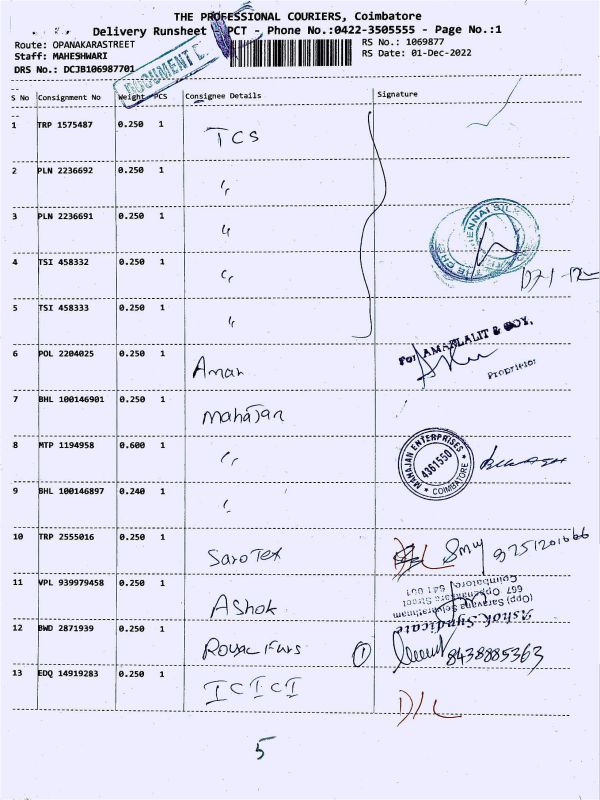 THE PROFESSIONAL COURIERS, Coimbatore
Delivery Runsheet PCT - Phone No.:0422-3505555 - Page No.:1
Route: OPANAKARASTREET RS No.: 1069877
Staff: MAHESHWARI RS Date: 01-Dec-2022
DRS No.: DCJB106987701
DOCUMENT
S No Consignment No Weight PCS Consignee Details Signature
1 TRP 1575487 0.250 1 TCS
2 PLN 2236692 0.250 1 〃
3 PLN 2236691 0.250 1 〃
4 TSI 458332 0.250 1 〃
5 TSI 458333 0.250 1 〃
6 POL 2204025 0.250 1 Aman For AMARLALIT & COY.
Proprietor
7 BHL 100146901 0.250 1 Mahajan
8 MTP 1194958 0.600 1 〃 MAHAJAN ENTERPRISES 4361550 COIMBATORE
9 BHL 100146897 0.240 1 〃
10 TRP 2555016 0.250 1 SaroTex D/L 9251201666
11 VPL 939979458 0.250 1 Ashok Ashok Syndicate
667 Oppanakkara Street
(Opp) Saravana Selvarathnam
Coimbatore, 641 001
12 BWD 2871939 0.250 1 Royal Furs 1 8438885363
13 EDQ 14919283 0.250 1 ICICI D/L
5